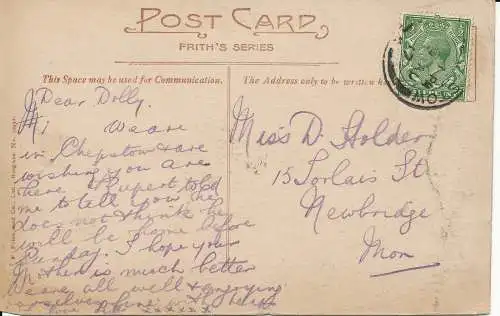 POST CARD
FRITH'S SERIES
This Space may be used for Communication.
The Address only to be written here
Dear Dolly.
We are
in Chepstow & are
wishing you are
here. Rupert told
me to tell you he
does not think he
will be home before
Sunday. I hope you
Mother is much better
we are all well & enjoying
ourselves fine with
love xxxxxx
Miss D. Holder
15 Torlais St
Newbridge
Mon